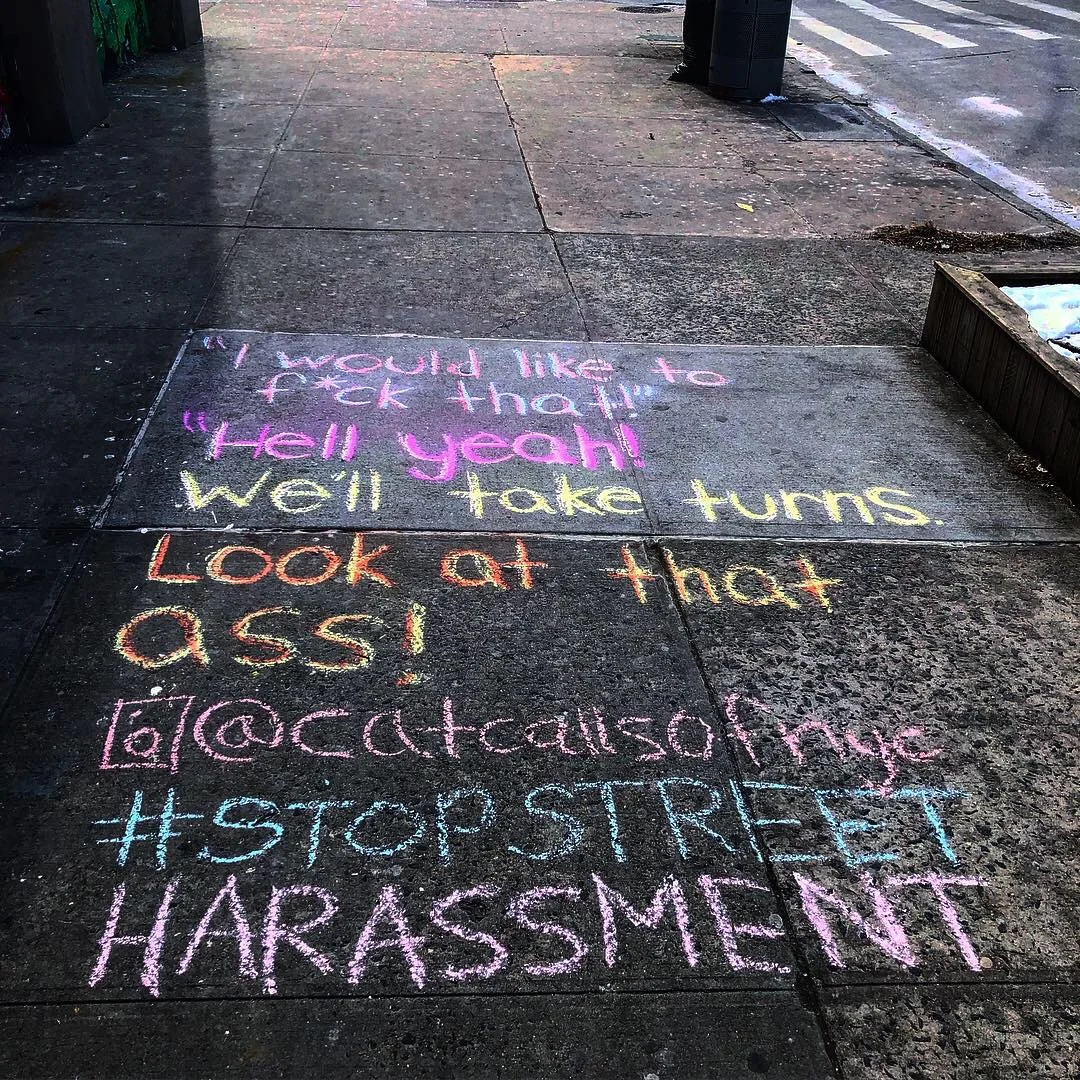 "I would like to
f*ck that!"
"Hell yeah!
We'll take turns.
Look at that
ass!
@catcallsofnyc
#STOPSTREET
HARASSMENT